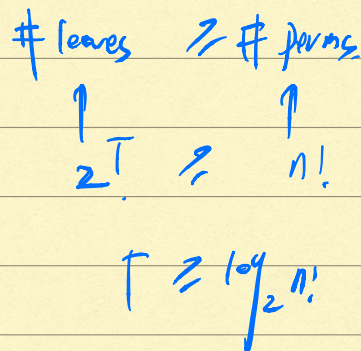 # leaves ≥ # perms
↑ ↑
2^T ≥ n!
T ≥ log_2 n!